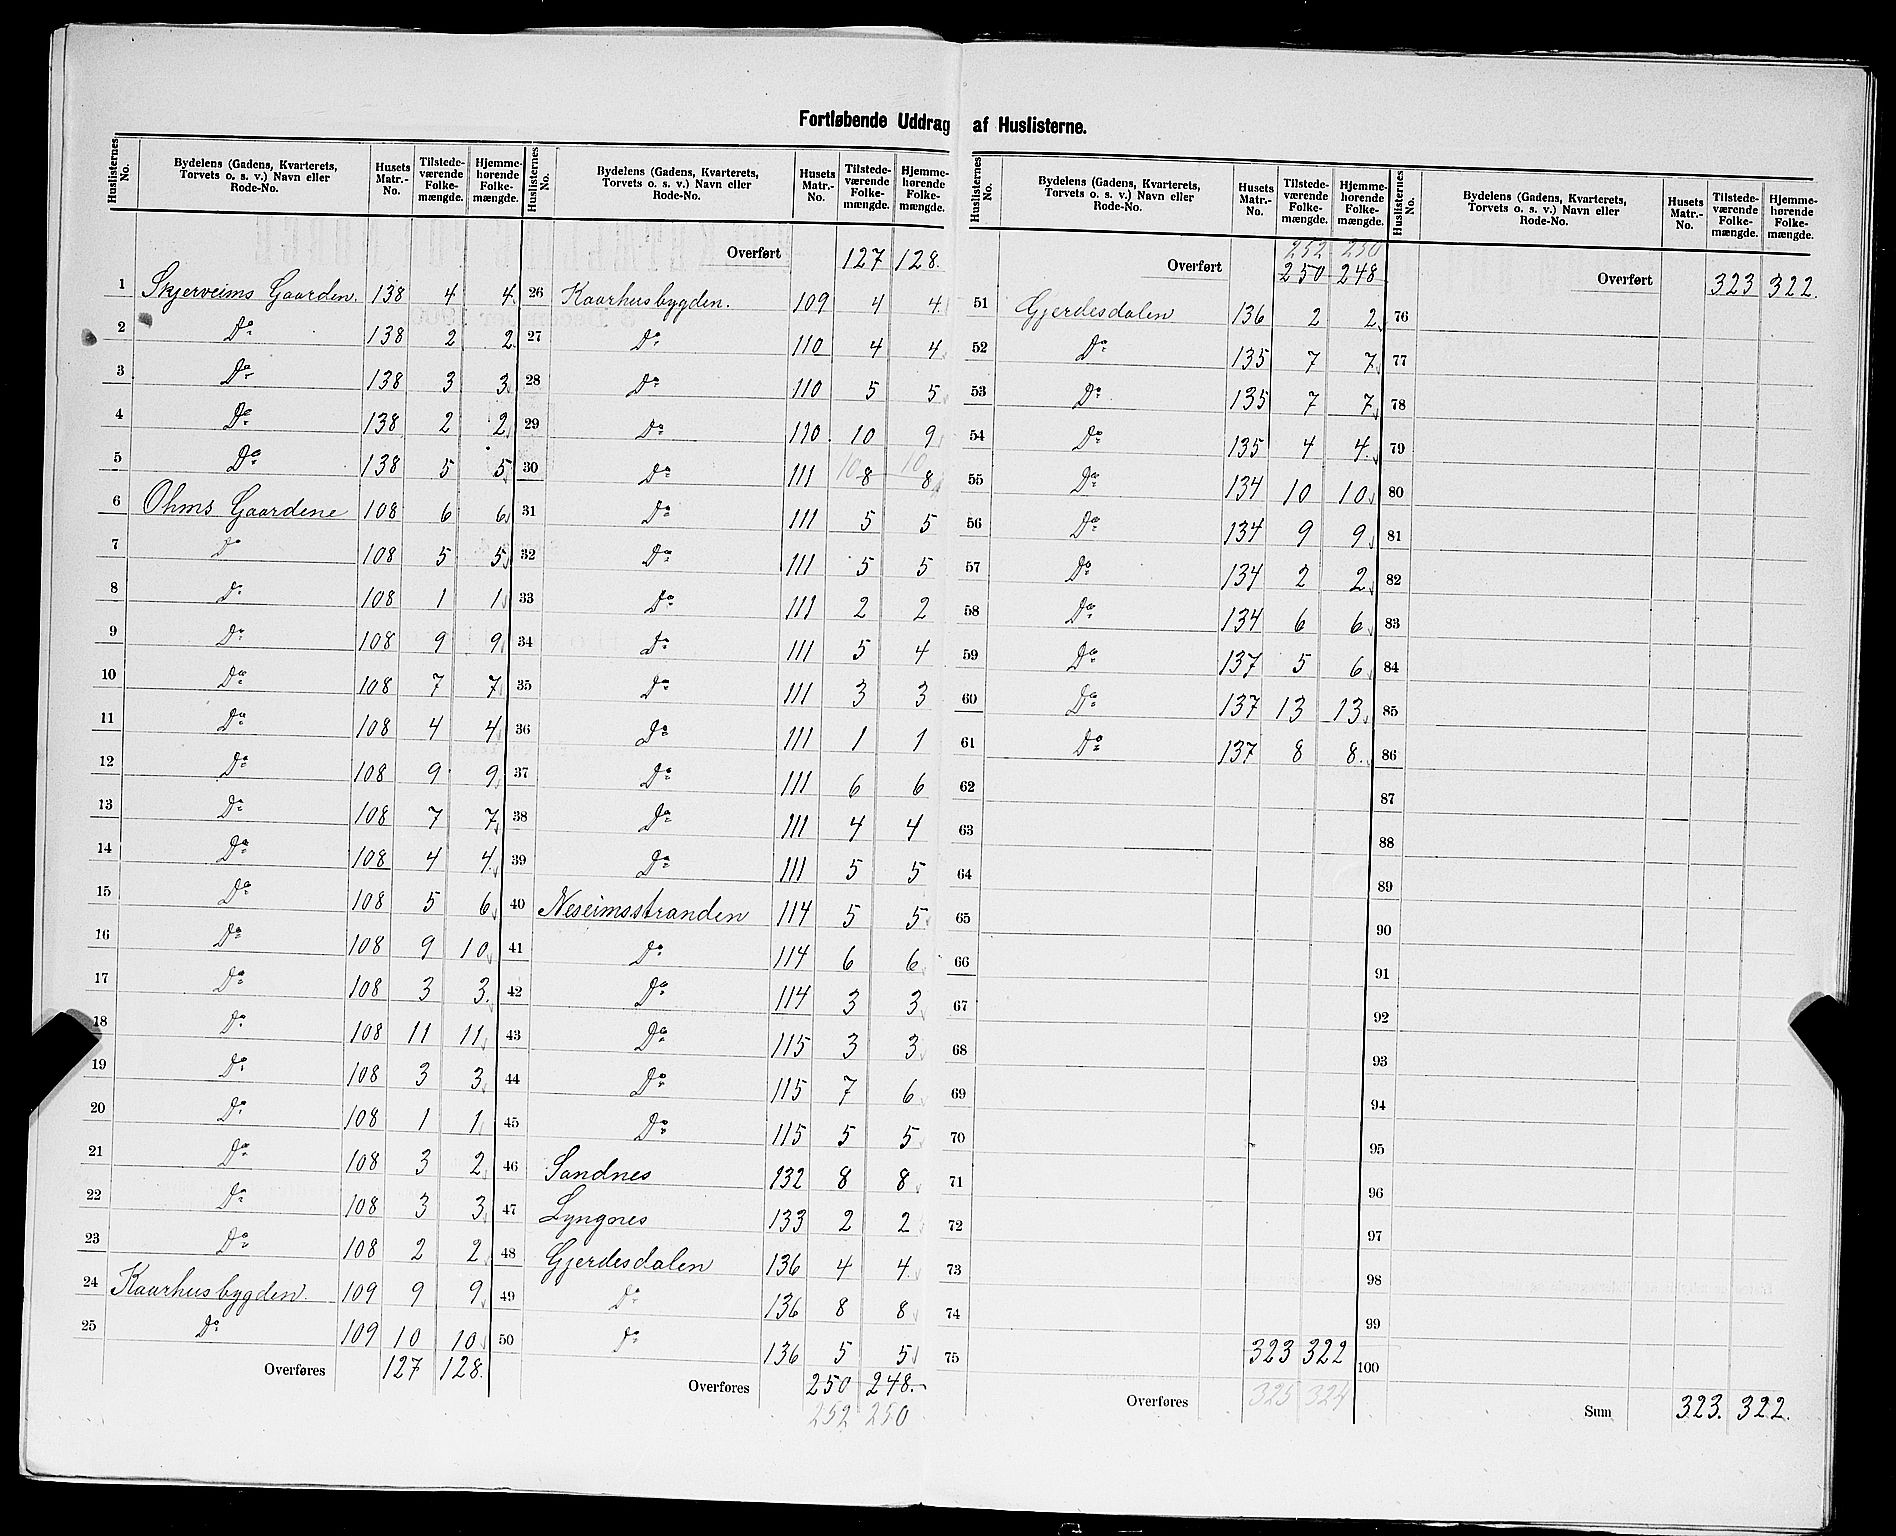 Fortløbende Uddrag af Huslisterne.
Huslisternes No. | Bydelens (Gadens, Kvarterets, Torvets o. s. v.) Navn eller Rode-No. | Husets Matr.-No. | Tilstede-værende Folke-mængde. | Hjemme-hørende Folke-mængde.
1 Skjerveims Gaarden. 138 4 4
2 Do 138 2 2
3 Do 138 3 3
4 Do 138 2 2
5 Do 138 5 5
6 Ohms Gaardene 108 6 6
7 Do 108 5 5
8 Do 108 1 1
9 Do 108 9 9
10 Do 108 7 7
11 Do 108 4 4
12 Do 108 9 9
13 Do 108 7 7
14 Do 108 4 4
15 Do 108 5 6
16 Do 108 9 10
17 Do 108 3 3
18 Do 108 11 11
19 Do 108 3 3
20 Do 108 1 1
21 Do 108 3 2
22 Do 108 3 3
23 Do 108 2 2
24 Kaarhusbygden. 109 9 9
25 Do 109 10 10
Overføres 127 128.
Huslisternes No. | Bydelens (Gadens, Kvarterets, Torvets o. s. v.) Navn eller Rode-No. | Husets Matr.-No. | Tilstede-værende Folke-mængde. | Hjemme-hørende Folke-mængde.
Overført 127 128.
26 Kaarhusbygden. 109 4 4
27 Do 110 4 4
28 Do 110 5 5
29 Do 110 10 9
30 Do 111 10 8 10 8
31 Do 111 5 5
32 Do 111 5 5
33 Do 111 2 2
34 Do 111 5 4
35 Do 111 3 3
36 Do 111 1 1
37 Do 111 6 6
38 Do 111 4 4
39 Do 111 5 5
40 Neseimsstranden 114 5 5
41 Do 114 6 6
42 Do 114 3 3
43 Do 115 3 3
44 Do 115 7 6
45 Do 115 5 5
46 Sandnes 132 8 8
47 Lyngnes 133 2 2
48 Gjerdesdalen 136 4 4
49 Do 136 8 8
50 Do 136 5 5
Overføres 250 248.
252 250
Huslisternes No. | Bydelens (Gadens, Kvarterets, Torvets o. s. v.) Navn eller Rode-No. | Husets Matr.-No. | Tilstede-værende Folke-mængde. | Hjemme-hørende Folke-mængde.
252 250
Overført 250 248
51 Gjerdesdalen 136 2 2
52 Do 135 7 7
53 Do 135 7 7
54 Do 135 4 4
55 Do 134 10 10
56 Do 134 9 9
57 Do 134 2 2
58 Do 134 6 6
59 Do 137 5 6
60 Do 137 13 13
61 Do 137 8 8
62
63
64
65
66
67
68
69
70
71
72
73
74
75 323 322
Overføres 325 324
Huslisternes No. | Bydelens (Gadens, Kvarterets, Torvets o. s. v.) Navn eller Rode-No. | Husets Matr.-No. | Tilstede-værende Folke-mængde. | Hjemme-hørende Folke-mængde.
Overført 323 322.
76
77
78
79
80
81
82
83
84
85
86
87
88
89
90
91
92
93
94
95
96
97
98
99
100
Sum 323. 322.